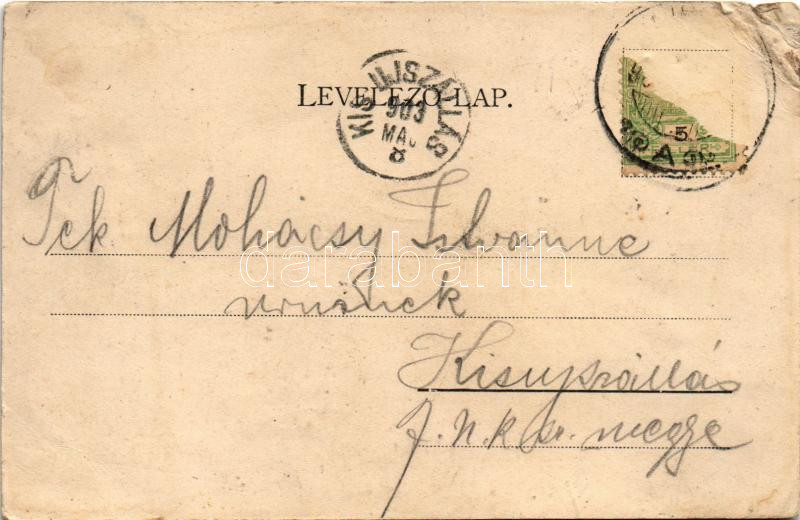 LEVELEZŐ-LAP.
KISUJSZÁLLÁS
903
MÁJ
8
5
Tek Mohácsy Istvanne
urnőnek
Kisujszállás
J. N. k. sz. megye
darabanth